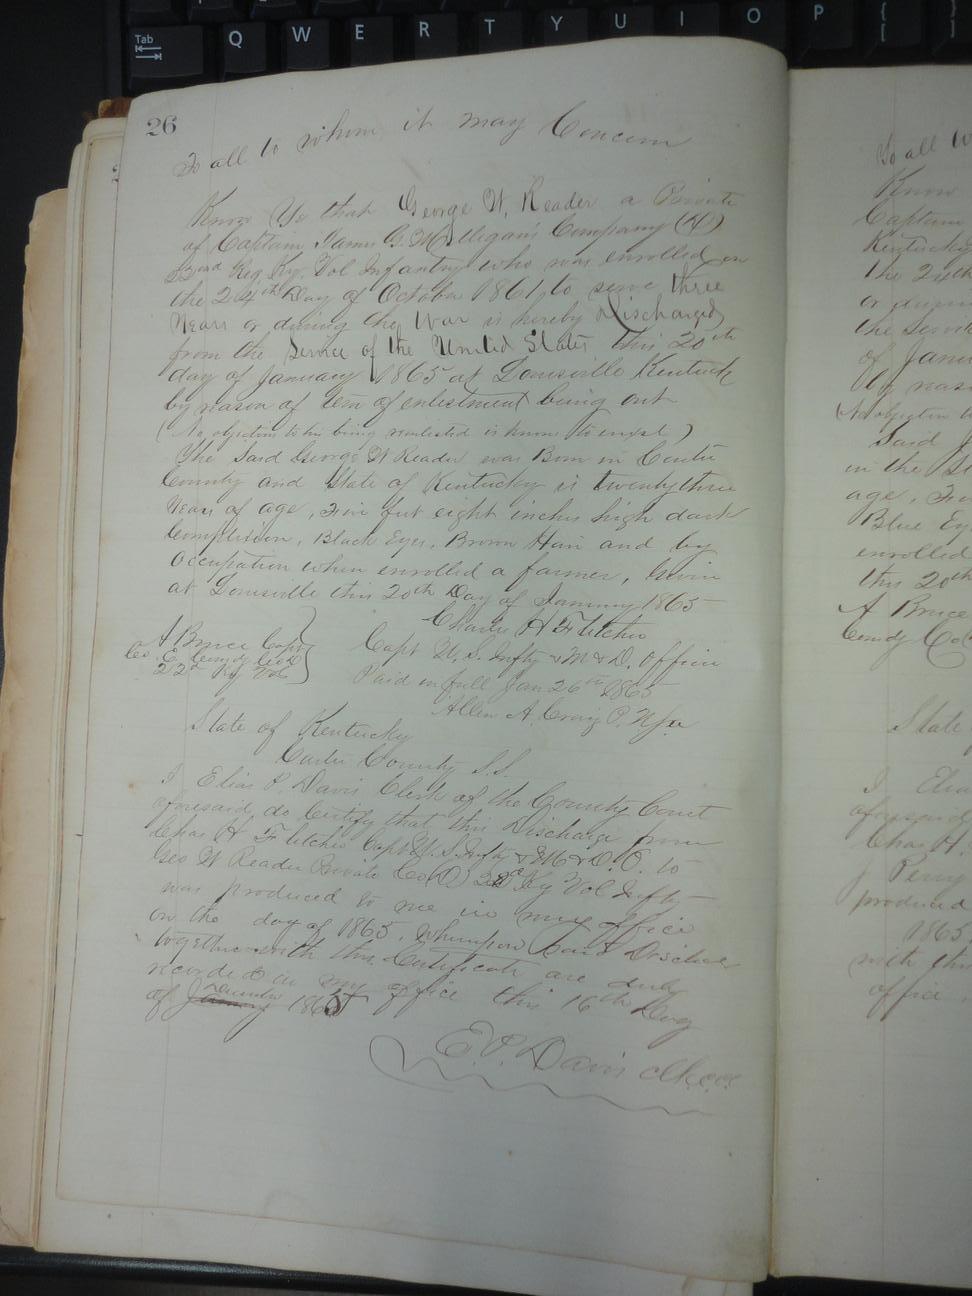 Tab
Q W E R T Y U I O P { [
26
To all to whom it may Concern
Know Ye that George W. Reader a Private
of Captain James G. Milligan's Company (D)
22nd Reg Ky. Vol Infantry who was enrolled on
the 24th Day of October 1861, to serve three
Years or during the War is hereby Discharged
from the Service of the United States this 20th
day of January 1865 at Louisville Kentucky
by reason of term of enlistment being out
(No objection to his being reenlisted is known to exist)
The Said George W Reader was Born in Carter
County and State of Kentucky is twenty three
Years of age, Five feet eight inches high dark
Complexion, Black Eyes, Brown Hair and by
occupation when enrolled a farmer, Given
at Louisville this 20th Day of January 1865
Charles H Fletcher
Capt U.S. Infty & M & D. Officer
A Bruce Capt
Co. E. Comdg Co D
22nd Ky Vol
Paid in full Jan 26th 1865
Allen A. Craig P.
State of Kentucky
Carter County S.S.
I Elias P. Davis Clerk of the County Court
aforesaid do Certify that this Discharge from
Chas H Fletcher Capt U.S. Infty & M & D. O. to
Geo W Reader Private Co (D) 22d Ky Vol Infty
was produced to me in my office
on the day of 1865, Whereupon Said Discharge
together with this Certificate are duly
recorded in my office this 16th Day
of January December 1865
E.P. Davis clk.c.c.
To all to w
Know
Captain
Kentucky
the 24th
or during
the Servic
of Janu
by reas
(No objection
Said
in the St
age, Five
Blue Ey
enrolled
this 20th
A Bruce
Comdg Co
State
I Elia
aforesaid
Chas H.
J Perry
produced
1865,
with this
office